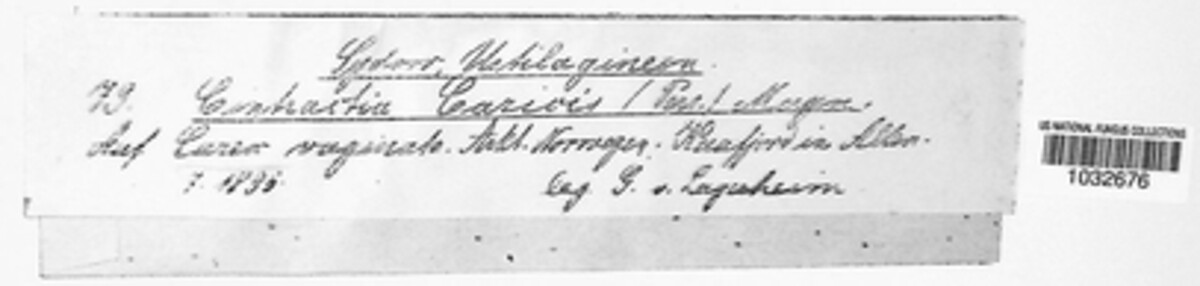 Sydow, Ustilagineen.
79. Cintractia Caricis (Pers.) Magn.
Auf Carex vaginata. Arkt. Norwegen. in Alten.
7. 1895 leg G. v. Lagerheim
US NATIONAL FUNGUS COLLECTIONS
1032676